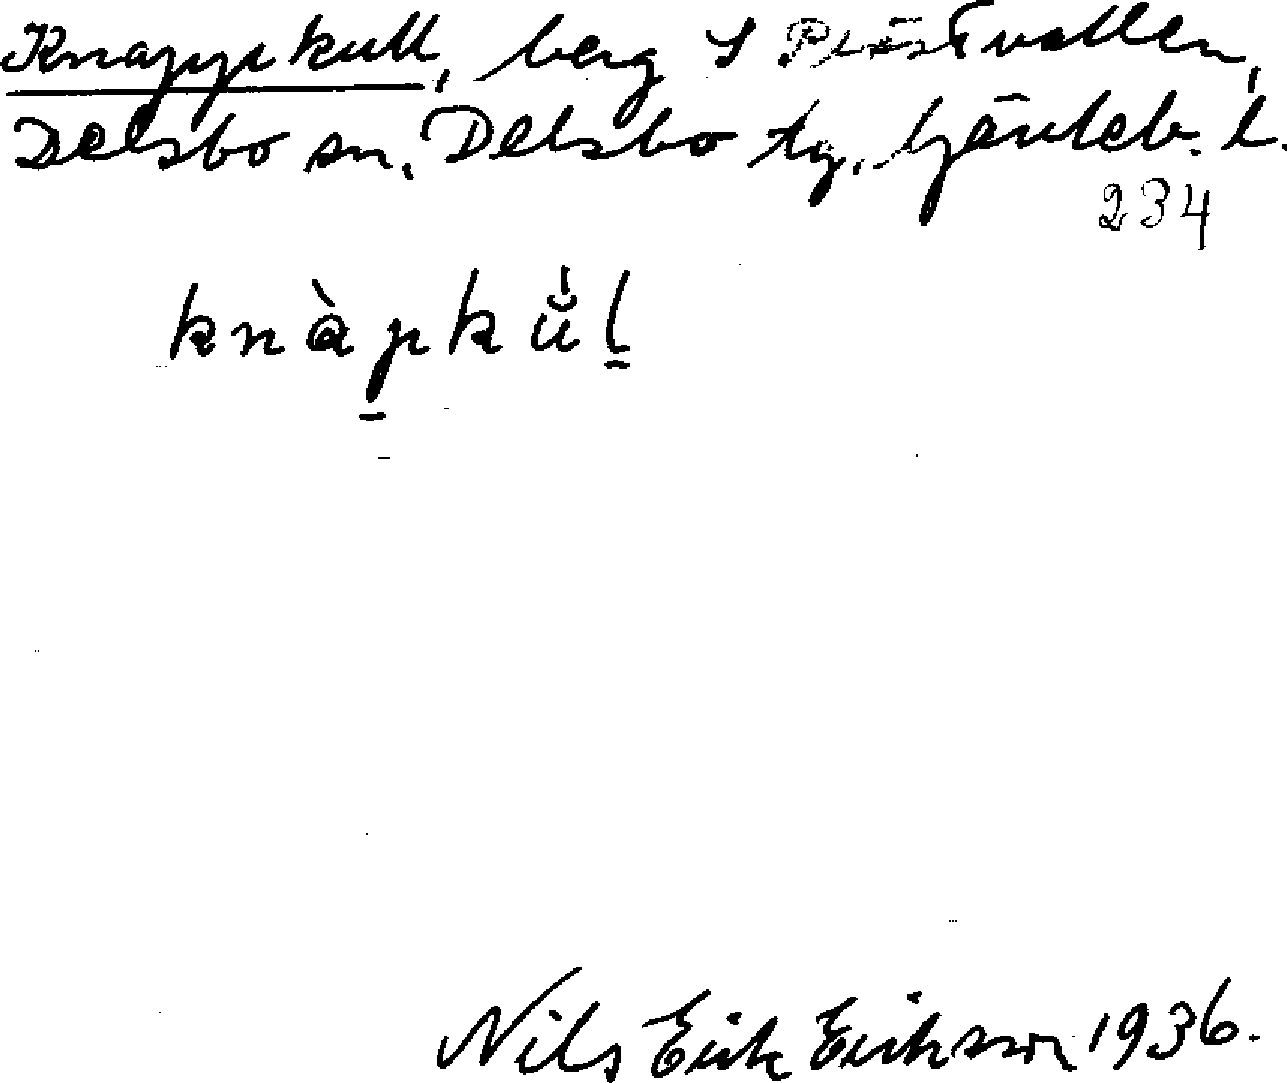 Knappkull, berg S Prästvallen,
Delsbo sn. Delsbo tg. Gävleb. l.
234
knàpkŭ́l
Nils Erik Erikson 1936.